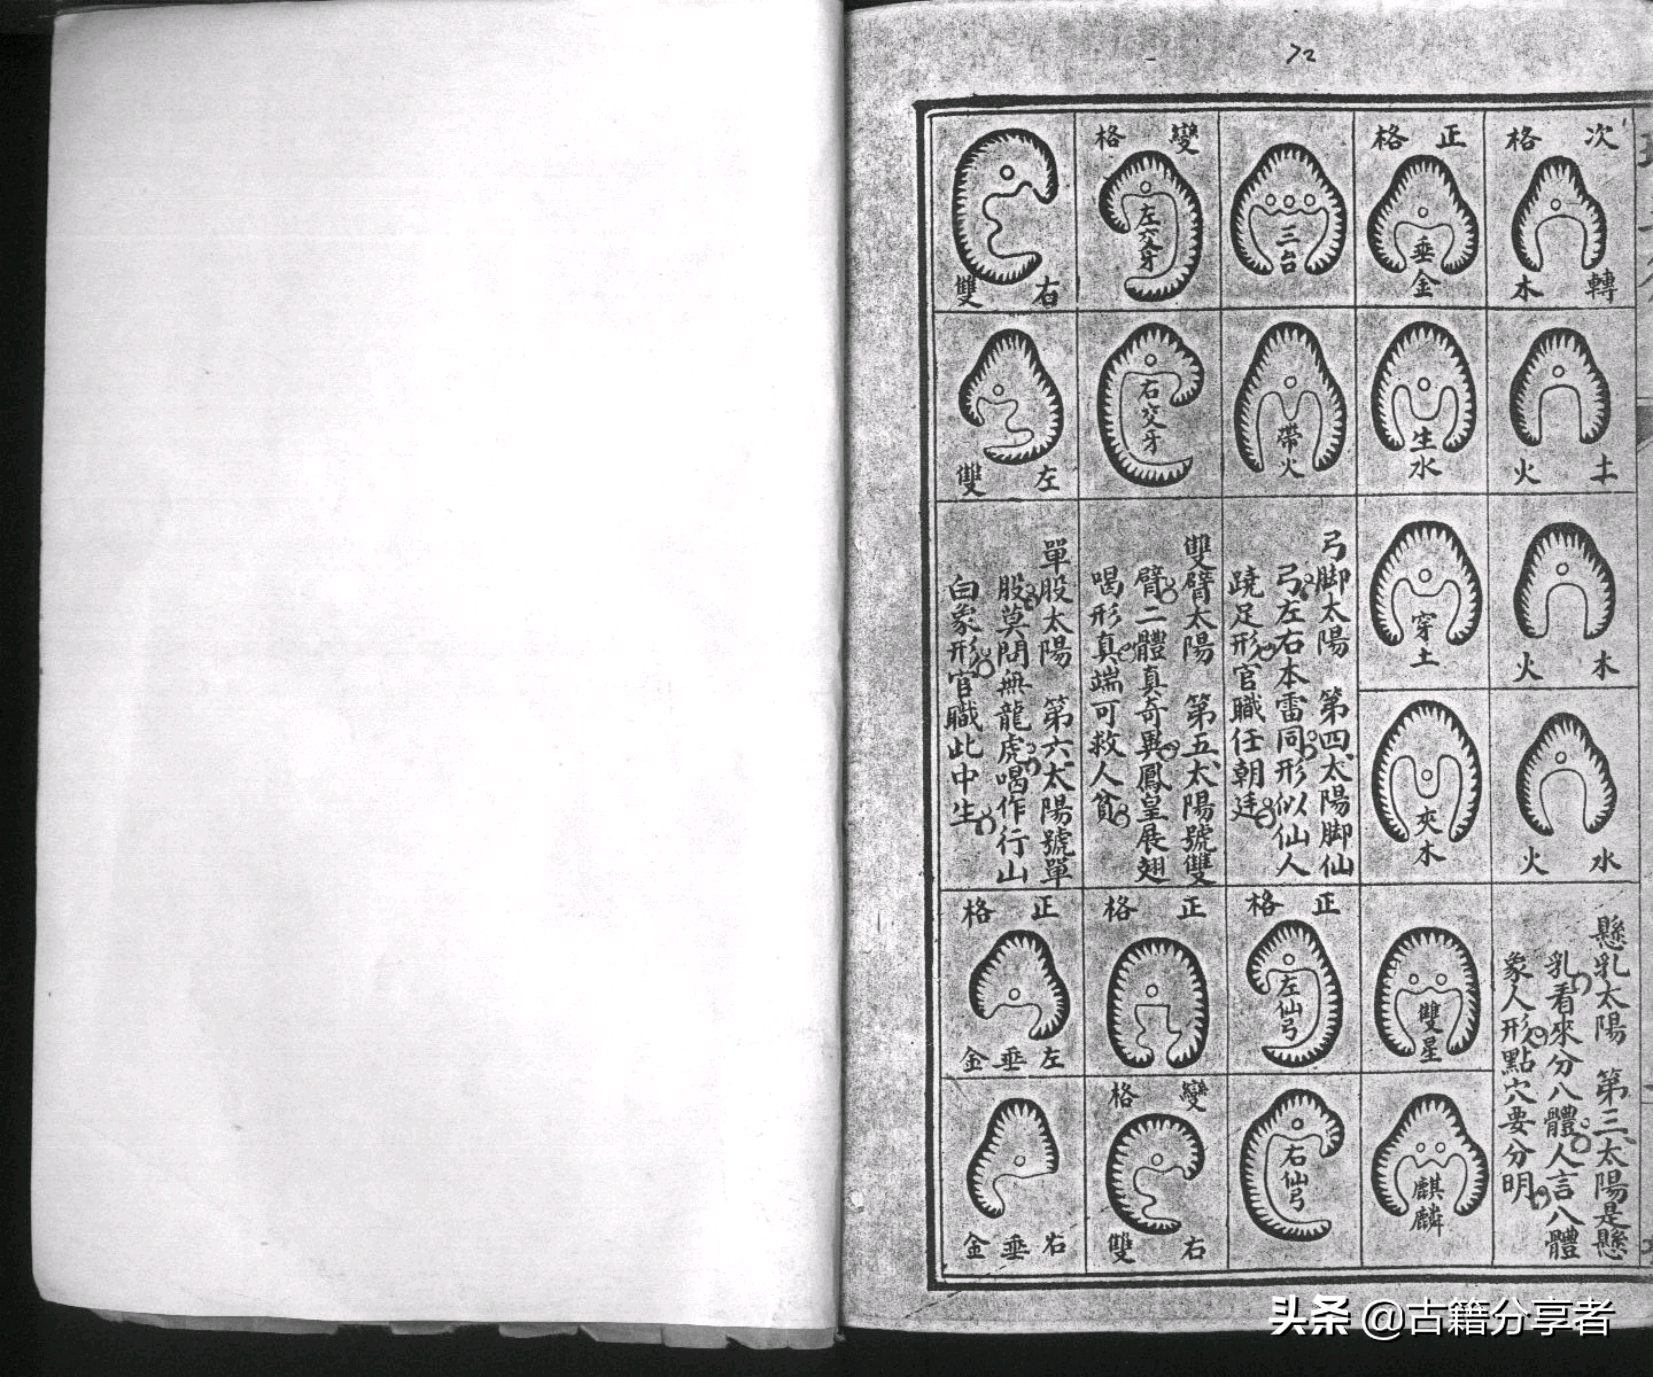 72
次格
轉木
土火
木火
水火
懸乳太陽 第三太陽是懸
乳看來分八體人言八體
象人形點穴要分明
正格
垂金
生水
穿土
夾木
雙星
麒麟
三台
帶火
弓脚太陽 第四太陽脚仙
弓左右本雷同形似仙人
蹺足形官職任朝廷
正格
左仙弓
右仙弓
變格
左交牙
右交牙
雙臂太陽 第五太陽號雙
臂二體真奇異鳳皇展翅
喝形真端可救人貧
正格
變格
右雙
右雙
左雙
單股太陽 第六太陽號單
股莫問無龍虎喝作行山
白象形官職此中生
正格
左垂金
右垂金
头条 @古籍分享者